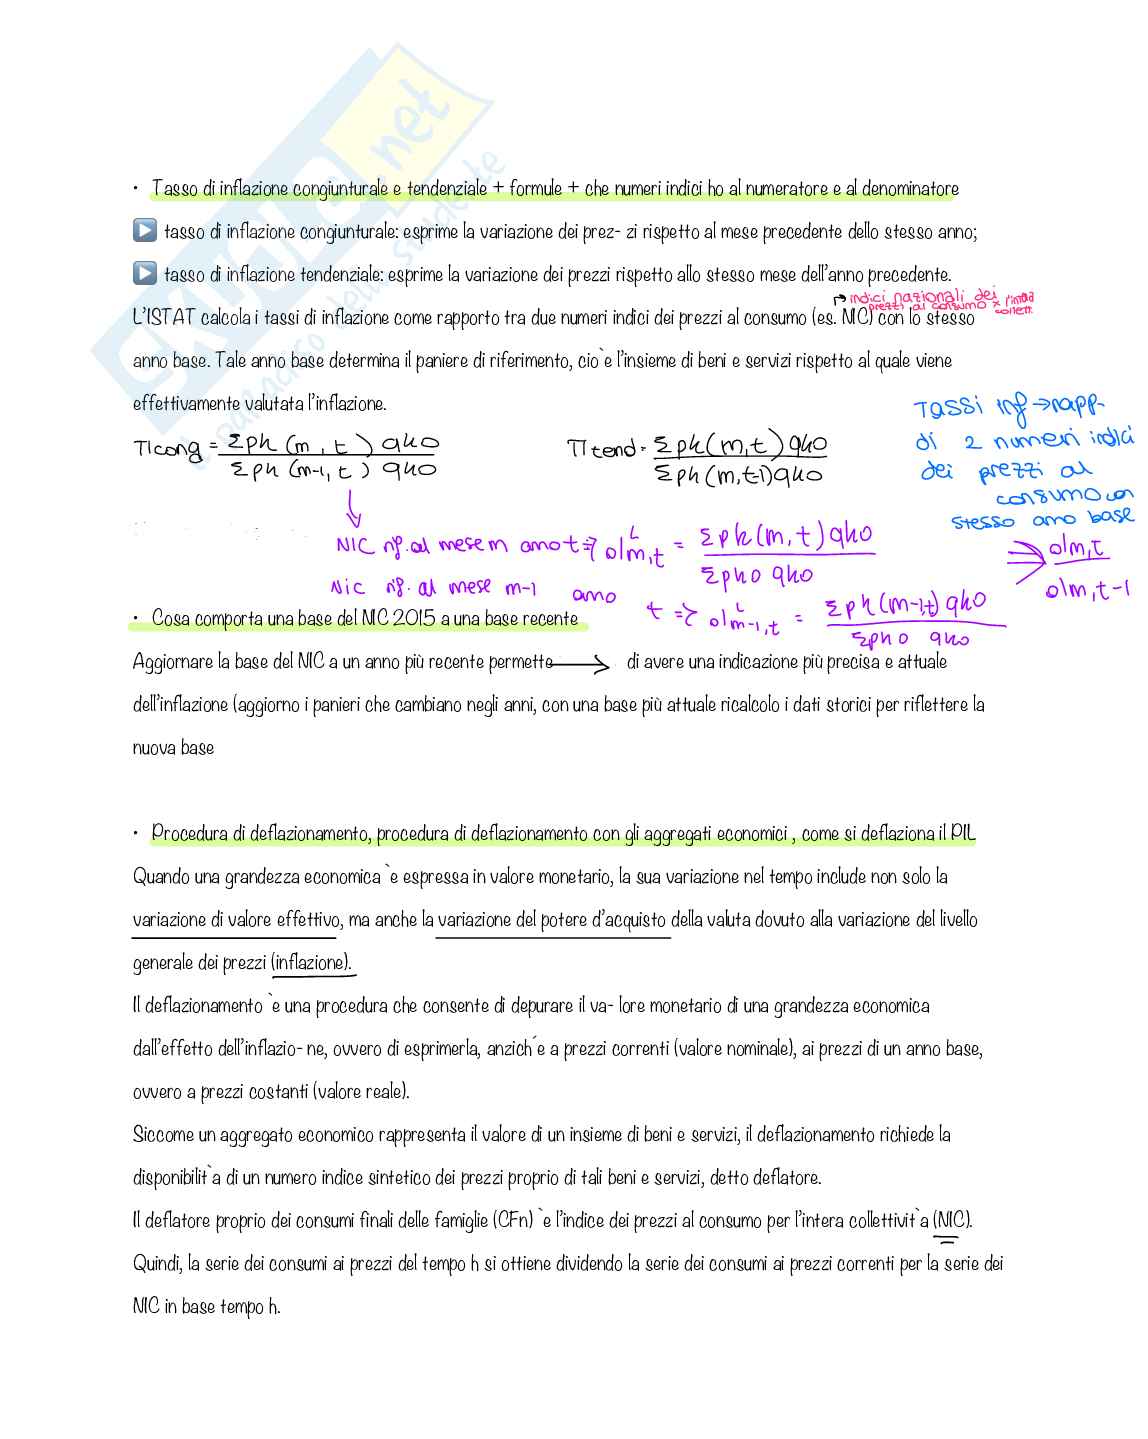 skuola.net
il paradiso dello studente
• Tasso di inflazione congiunturale e tendenziale + formule + che numeri indici ho al numeratore e al denominatore
▶ tasso di inflazione congiunturale: esprime la variazione dei prez- zi rispetto al mese precedente dello stesso anno;
▶ tasso di inflazione tendenziale: esprime la variazione dei prezzi rispetto allo stesso mese dell'anno precedente.
→ indici nazionali dei
prezzi al consumo x l'intera
collett.
L'ISTAT calcola i tassi di inflazione come rapporto tra due numeri indici dei prezzi al consumo (es. NIC) con lo stesso
anno base. Tale anno base determina il paniere di riferimento, cio`e l'insieme di beni e servizi rispetto al quale viene
effettivamente valutata l'inflazione.
Tassi inf → rapp.
di 2 numeri indici
dei prezzi al
consumo con
stesso anno base
πcong = Σph (m, t) qh0 / Σph (m-1, t) qh0
πtend = Σph(m,t) qh0 / Σph(m,t-1) qh0
NIC rif. al mese m anno t => 0Im,t^L = Σph(m,t) qh0 / Σph0 qh0
=> 0Im,t / 0Im,t-1
NIC rif. al mese m-1 anno
t => 0Im-1,t^L = Σph(m-1,t) qh0 / Σph0 qh0
• Cosa comporta una base del NIC 2015 a una base recente
Aggiornare la base del NIC a un anno più recente permette → di avere una indicazione più precisa e attuale
dell'inflazione (aggiorno i panieri che cambiano negli anni, con una base più attuale ricalcolo i dati storici per riflettere la
nuova base
• Procedura di deflazionamento, procedura di deflazionamento con gli aggregati economici , come si deflaziona il PIL
Quando una grandezza economica `e espressa in valore monetario, la sua variazione nel tempo include non solo la
variazione di valore effettivo, ma anche la variazione del potere d'acquisto della valuta dovuto alla variazione del livello
generale dei prezzi (inflazione).
Il deflazionamento `e una procedura che consente di depurare il va- lore monetario di una grandezza economica
dall'effetto dell'inflazio- ne, ovvero di esprimerla, anzich´e a prezzi correnti (valore nominale), ai prezzi di un anno base,
ovvero a prezzi costanti (valore reale).
Siccome un aggregato economico rappresenta il valore di un insieme di beni e servizi, il deflazionamento richiede la
disponibilit`a di un numero indice sintetico dei prezzi proprio di tali beni e servizi, detto deflatore.
Il deflatore proprio dei consumi finali delle famiglie (CFn) `e l'indice dei prezzi al consumo per l'intera collettivit`a (NIC).
Quindi, la serie dei consumi ai prezzi del tempo h si ottiene dividendo la serie dei consumi ai prezzi correnti per la serie dei
NIC in base tempo h.